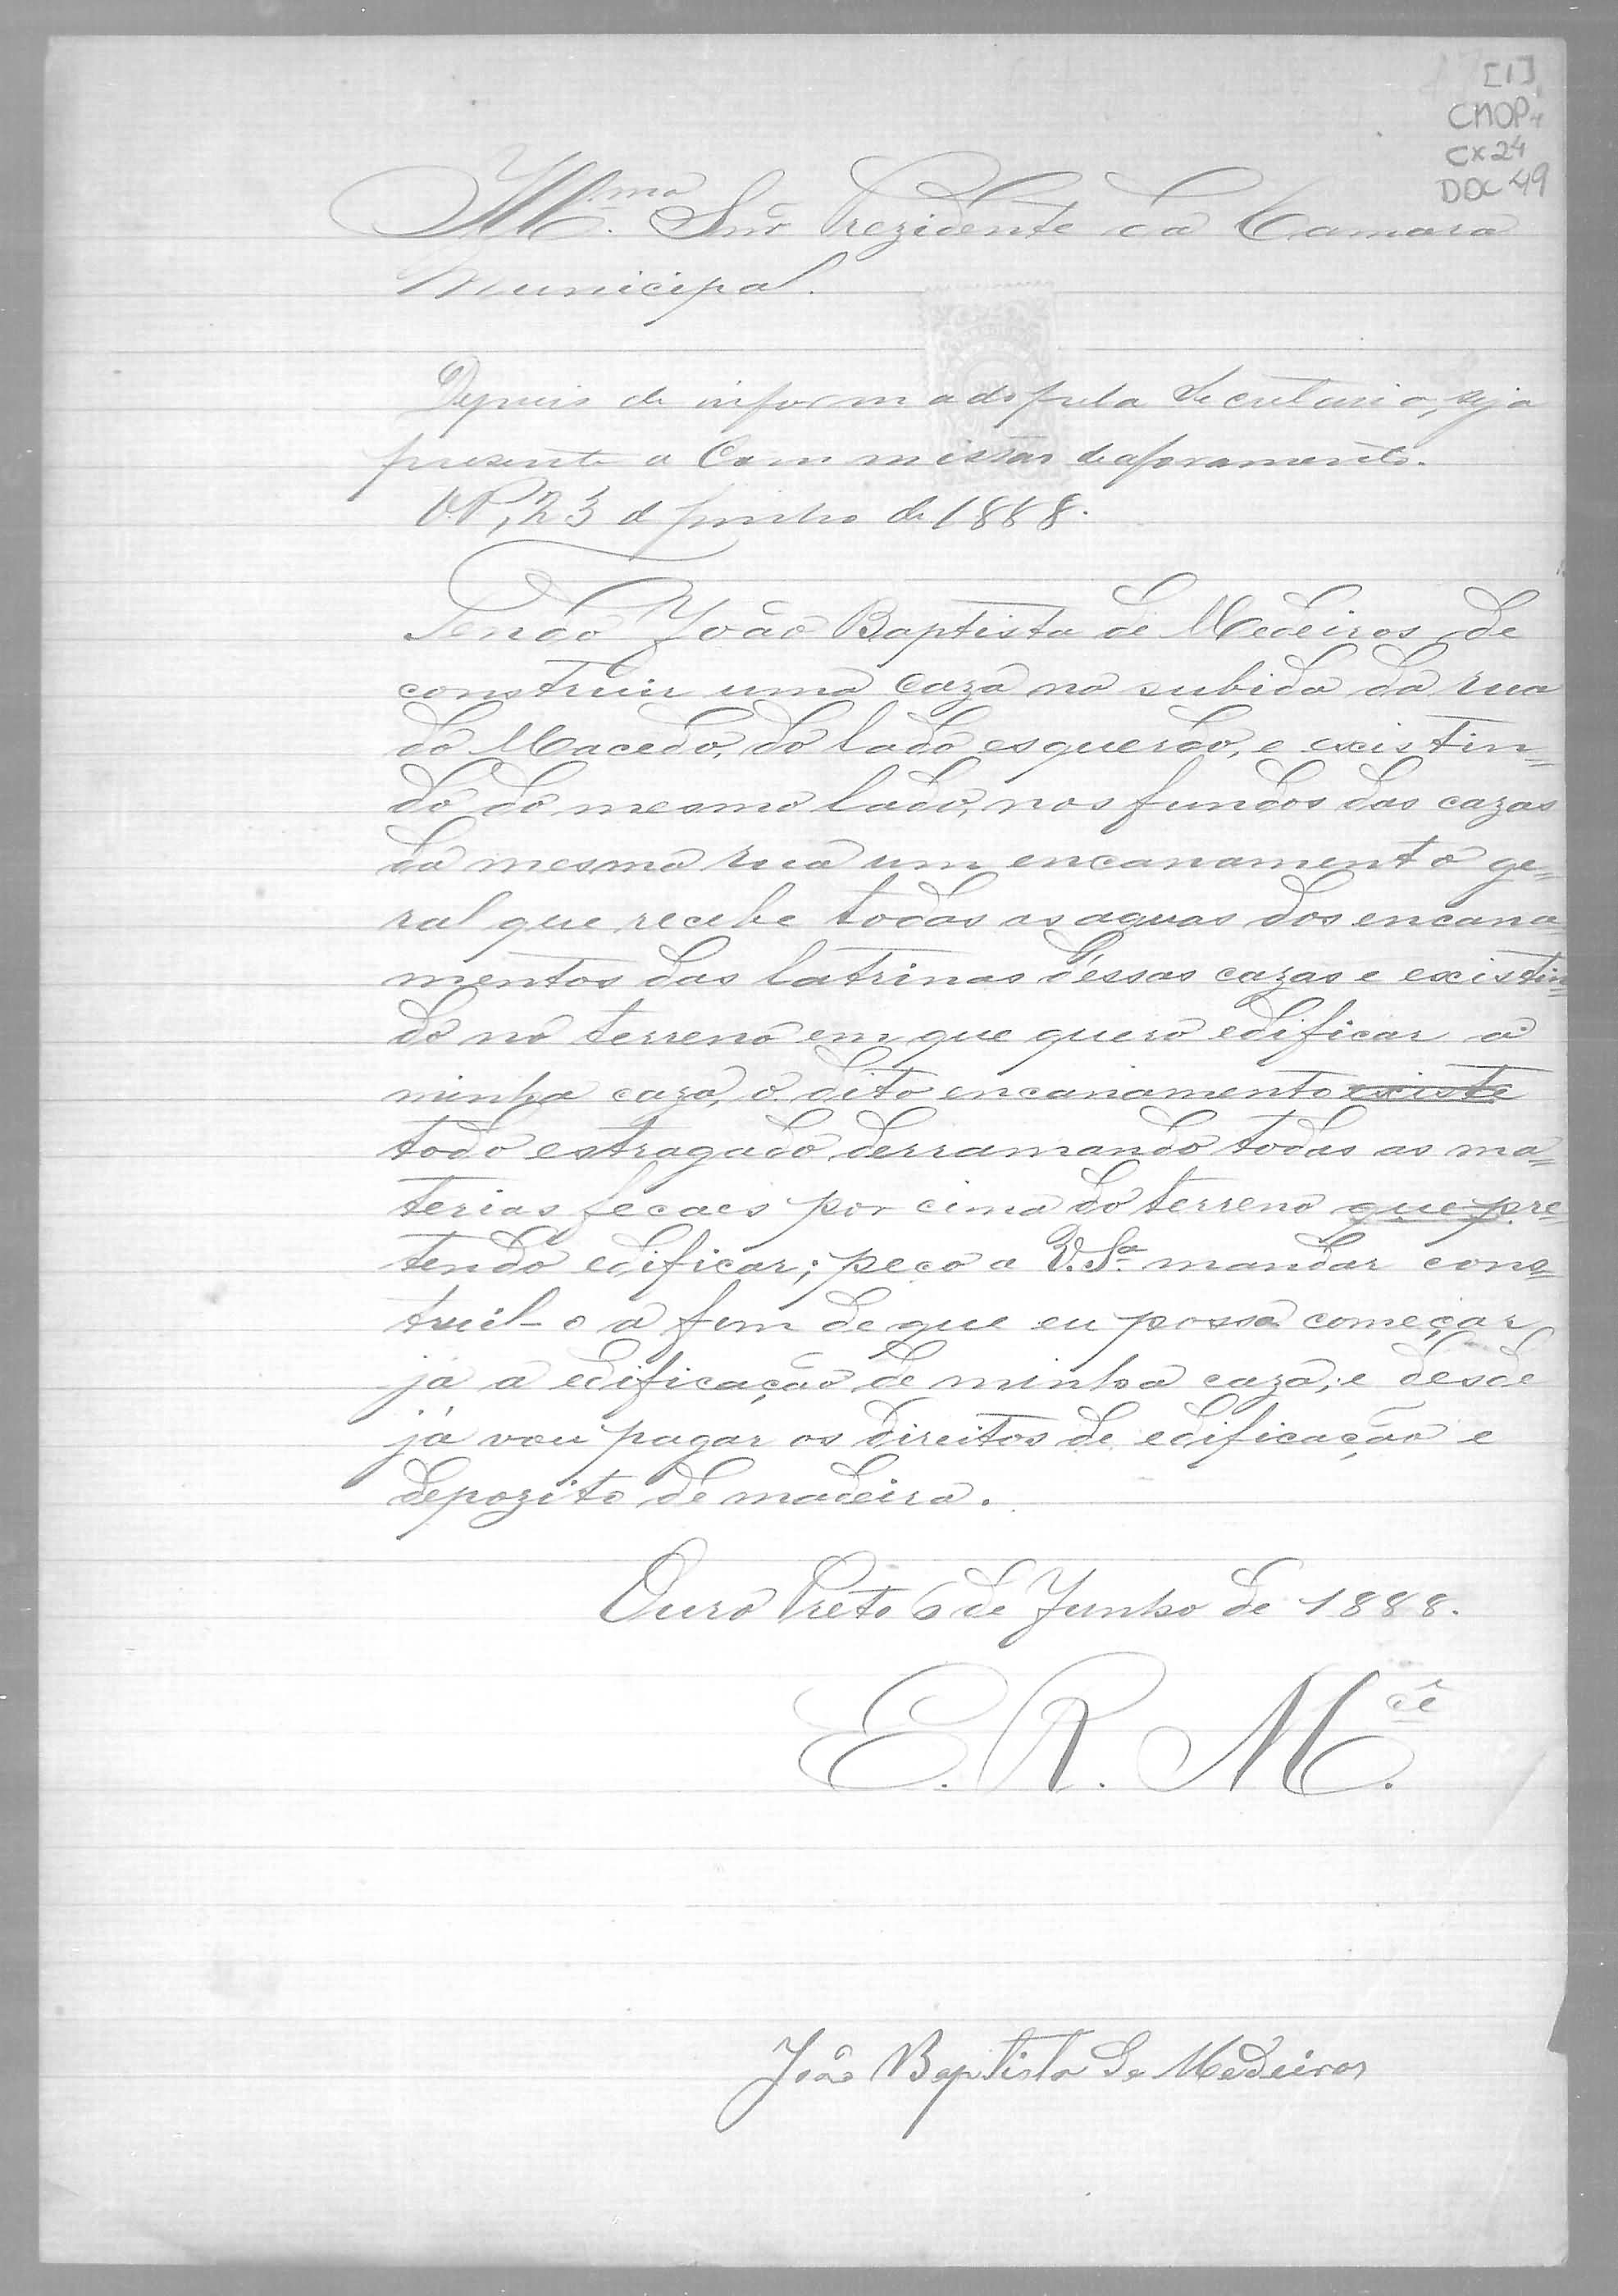 [1]
CMOP
CX 24
DOC 49
Illmo. Snr. Prezidente da Camara
Municipal.
Depois de informado pela Secretaria, seja
presente a Commissão de aforamento.
O.P., 23 d junho de 1888.
Tendo João Baptista de Medeiros de
construir uma caza na subida da rua
do Macedo, do lado esquerdo, e existin=
do do mesmo lado, nos fundos das cazas
da mesma rua um encanamento ge=
ral que recebe todas as aguas dos encana=
mentos das latrinas d'essas cazas e existin=
do no terreno em que quero edificar a
minha caza, o dito encanamento existe
todo estragado, derramando todas as ma=
terias fecaes por cima do terreno que pre=
tendo edificar; peço a V. Sa. mandar cons=
truil-o a fim de que eu possa começar
já a edificação de minha caza; e desde
já vou pagar os direitos de edificação e
depozito de madeira.
Ouro Preto 6 de Junho de 1888.
E. R. Mcê.
João Baptista de Medeiros